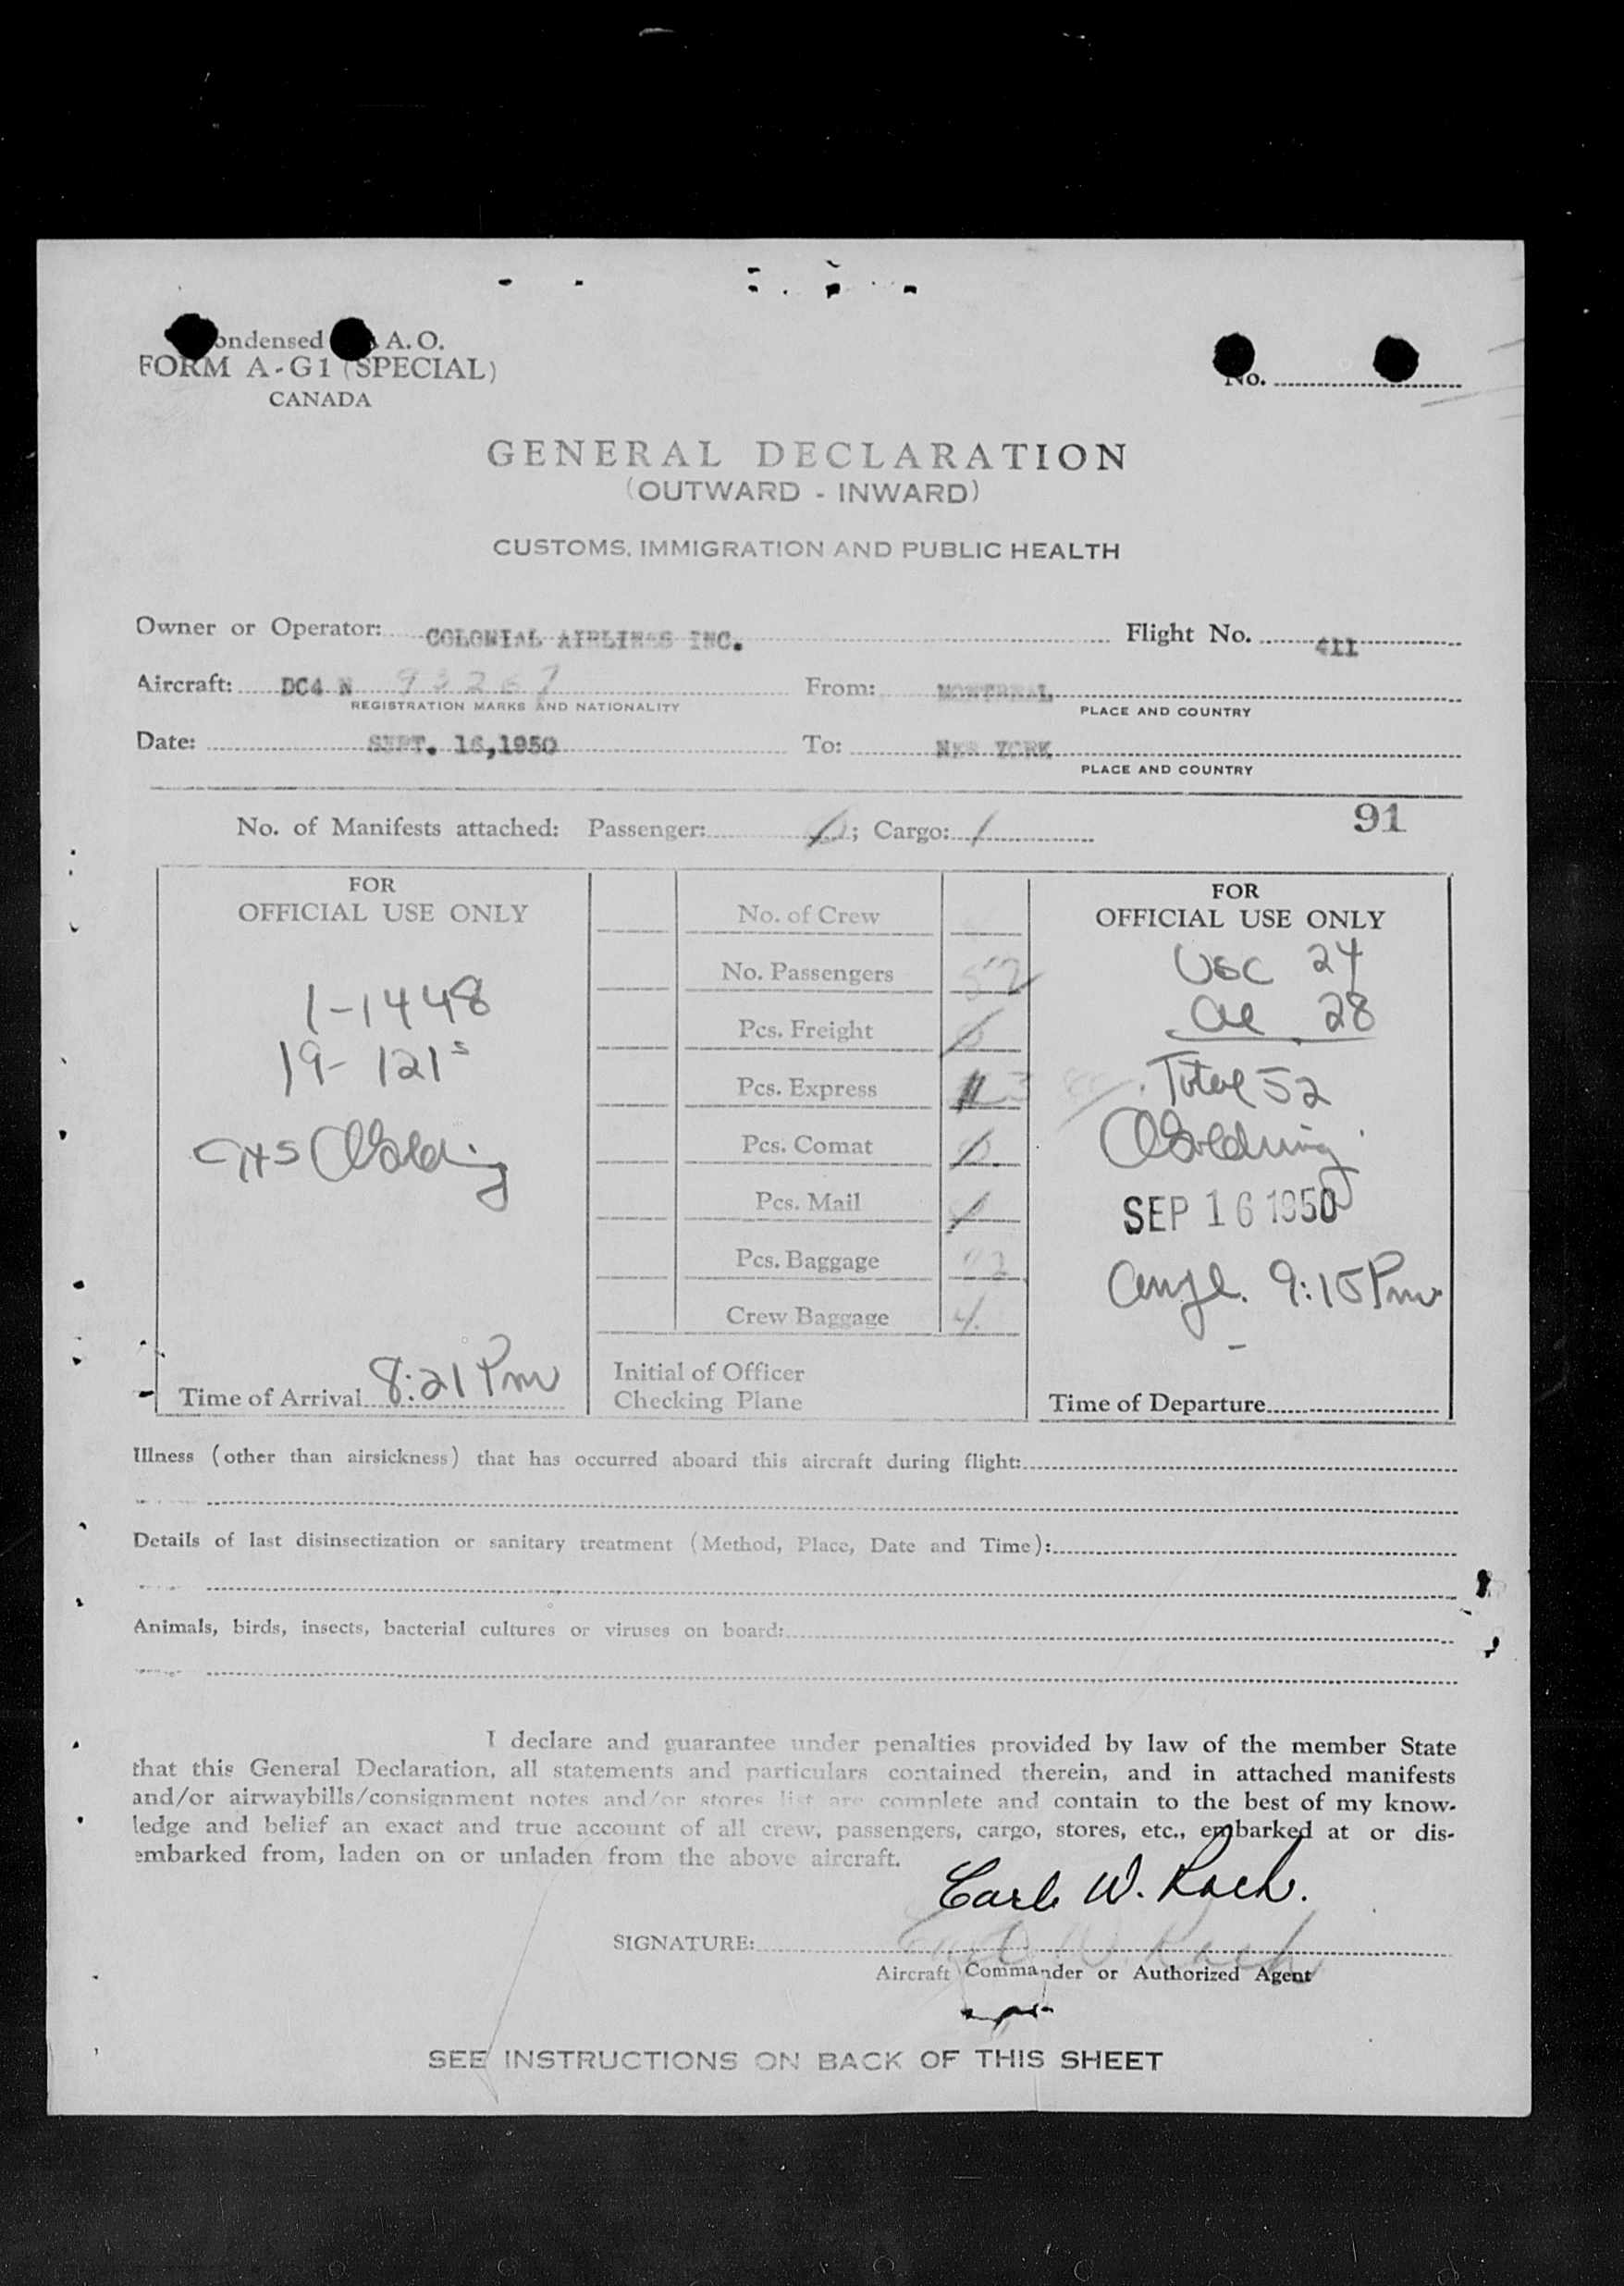 ondensed A. O.
FORM A-G1 (SPECIAL)
CANADA
No.
GENERAL DECLARATION
(OUTWARD - INWARD)
CUSTOMS, IMMIGRATION AND PUBLIC HEALTH
Owner or Operator: COLONIAL AIRLINES INC. Flight No. 411
Aircraft: DC4 N 93267 From: MONTREAL
REGISTRATION MARKS AND NATIONALITY PLACE AND COUNTRY
Date: SEPT. 16,1950 To: NEW YORK
PLACE AND COUNTRY
91
No. of Manifests attached: Passenger: ; Cargo: 1
FOR
OFFICIAL USE ONLY
1-1448
19-121s
CHS
Time of Arrival 8:21 Pm
No. of Crew
No. Passengers 52
Pcs. Freight
Pcs. Express
Pcs. Comat
Pcs. Mail
Pcs. Baggage
Crew Baggage 4.
Initial of Officer
Checking Plane
FOR
OFFICIAL USE ONLY
USC 24
al 28
Total 52
SEP 16 1950
9:15 Pm
Time of Departure
Illness (other than airsickness) that has occurred aboard this aircraft during flight:
Details of last disinsectization or sanitary treatment (Method, Place, Date and Time):
Animals, birds, insects, bacterial cultures or viruses on board:
I declare and guarantee under penalties provided by law of the member State
that this General Declaration, all statements and particulars contained therein, and in attached manifests
and/or airwaybills/consignment notes and/or stores list are complete and contain to the best of my know-
ledge and belief an exact and true account of all crew, passengers, cargo, stores, etc., embarked at or dis-
embarked from, laden on or unladen from the above aircraft.
Carl W. Koch.
SIGNATURE:
Aircraft Commander or Authorized Agent
SEE INSTRUCTIONS ON BACK OF THIS SHEET